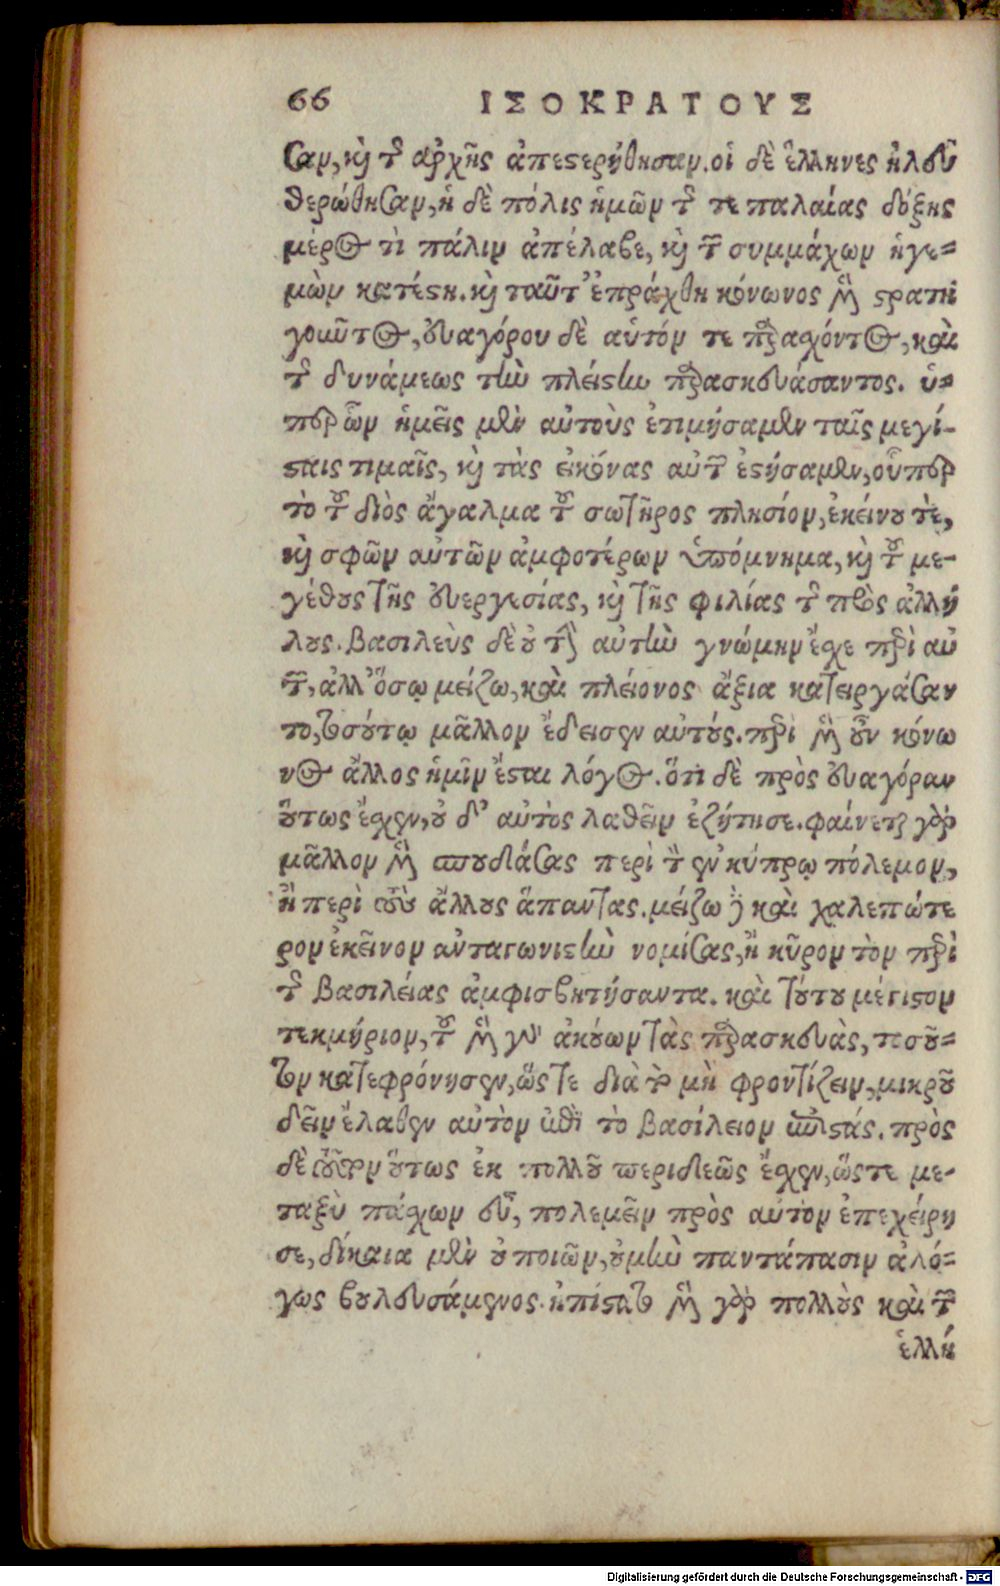 66 ΙΣΟΚΡΑΤΟΥΣ
σαν, καὶ τῆς ἀρχῆς ἀπεστερήθησαν. οἱ δὲ ἕλληνες ἠλευ
θερώθησαν, ἡ δὲ πόλις ἡμῶν τῆς τε παλαιᾶς δόξης
μέρος τὶ πάλιν ἀπέλαβε, καὶ τῶν συμμάχων ἡγε-
μὼν κατέστη. καὶ ταῦτ' ἐπράχθη κόνωνος μὲν στρατη
γοῦντος, εὐαγόρου δὲ αὑτόν τε παρασχόντος, καὶ
τῆς δυνάμεως τὴν πλείστην παρασκευάσαντος. ὑ-
πὲρ ὧν ἡμεῖς μὲν αὐτοὺς ἐτιμήσαμεν ταῖς μεγί-
σταις τιμαῖς, καὶ τὰς εἰκόνας αὐτῶν ἐστήσαμεν, οὗπερ
τὸ τοῦ διὸς ἄγαλμα τοῦ σωτῆρος πλησίον, ἐκείνου τὲ,
καὶ σφῶν αὐτῶν ἀμφοτέρων ὑπόμνημα, καὶ τοῦ με-
γέθους τῆς εὐεργεσίας, καὶ τῆς φιλίας τῆς πρὸς ἀλλή
λους. βασιλεὺς δὲ οὐ τὴν αὐτὴν γνώμην ἔσχε περὶ αὐ
τῶν, ἀλλ' ὅσῳ μείζω, καὶ πλείονος ἄξια κατειργάσαν
το, τοσούτῳ μᾶλλον ἔδεισεν αὐτούς. περὶ μὲν οὖν κόνω
νος ἄλλος ἡμῖν ἔσται λόγος. ὅτι δὲ πρὸς εὐαγόραν
οὕτως ἔσχεν, οὐ δ' αὐτὸς λαθεῖν ἐζήτησε. φαίνεται γὰρ
μᾶλλον μὲν σπουδάσας περὶ τὸν ἐν κύπρῳ πόλεμον,
ἢ περὶ τοὺς ἄλλους ἅπαντας. μείζω δὲ καὶ χαλεπώτε
ρον ἐκεῖνον ἀνταγωνιστὴν νομίσας, ἢ κῦρον τὸν περὶ
τῆς βασιλείας ἀμφισβητήσαντα. καὶ τούτου μέγιστον
τεκμήριον, τοῦ μὲν γὰρ ἀκούων τὰς παρασκευὰς, τοσοῦ-
τον κατεφρόνησεν, ὥστε διὰ τὸ μὴ φροντίζειν, μικροῦ
δεῖν ἔλαθεν αὐτὸν ἐπὶ τὸ βασίλειον ἐπιστάς. πρὸς
δὲ τοῦτον οὕτως ἐκ πολλοῦ περιδεῶς ἔσχεν, ὥστε με-
ταξὺ πάσχων εὖ, πολεμεῖν πρὸς αὐτὸν ἐπεχείρη
σε, δίκαια μὲν οὐ ποιῶν, οὐ μὴν παντάπασιν ἀλό-
γως βουλευσάμενος. ἠπίστατο μὲν γὰρ πολλοὺς καὶ τῶν
ἑλλή
Digitalisierung gefördert durch die Deutsche Forschungsgemeinschaft - DFG